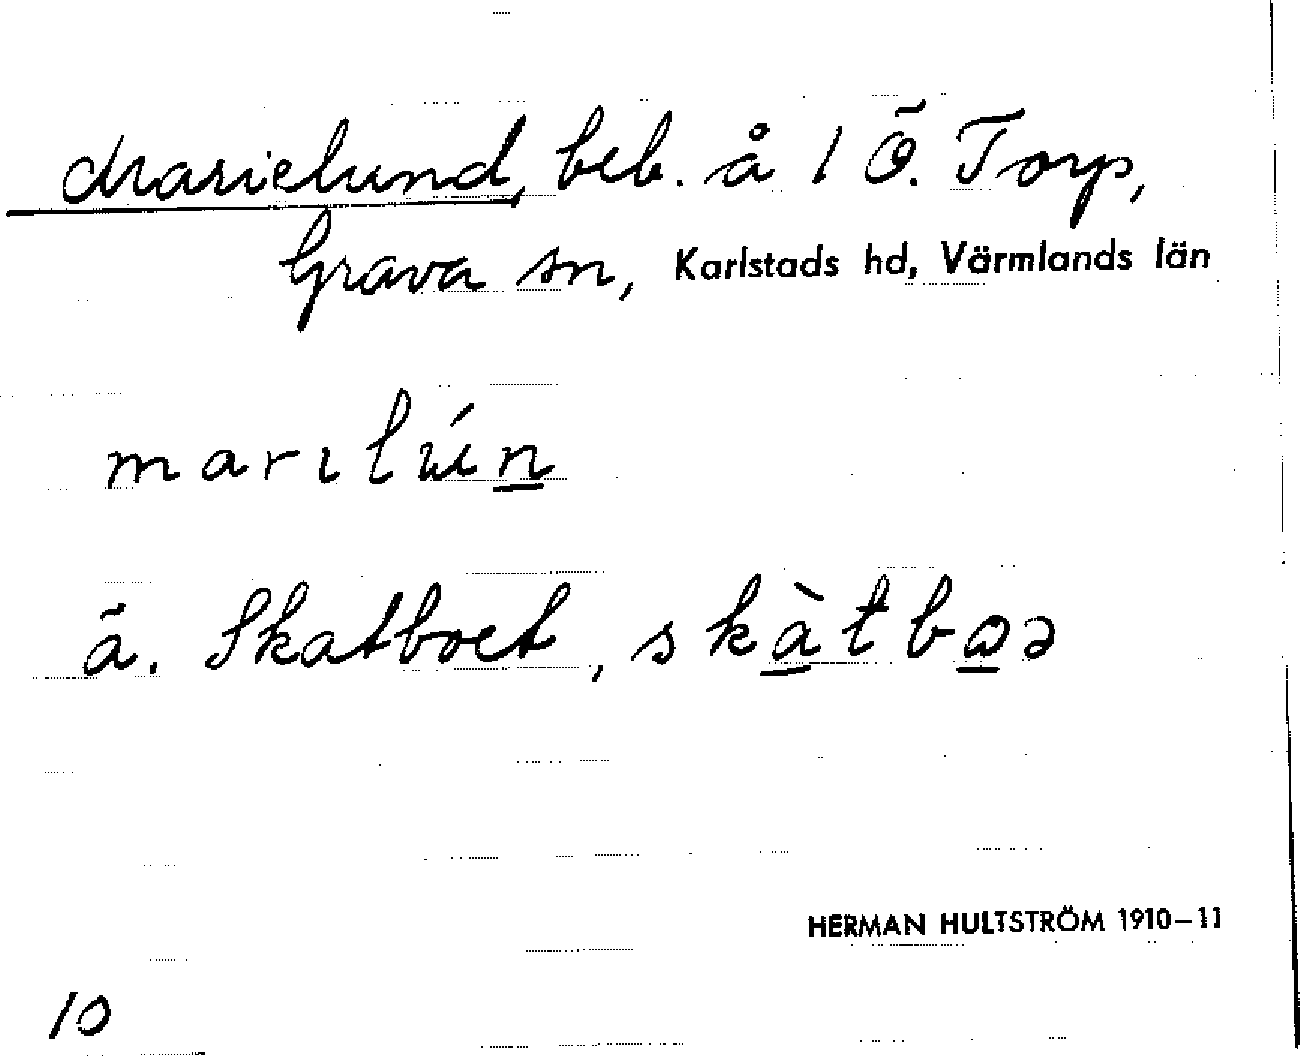 Marielund, beb. å 1 Ö. Torp,
Grava sn, Karlstads hd, Värmlands län
marılún
ä. Skatboet, skàtboə
HERMAN HULTSTRÖM 1910–11
10